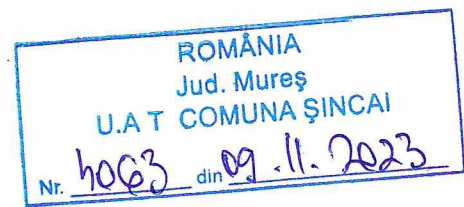 ROMÂNIA
Jud. Mureş
U.A T COMUNA ŞINCAI
Nr. 4063 din 09.11.2023